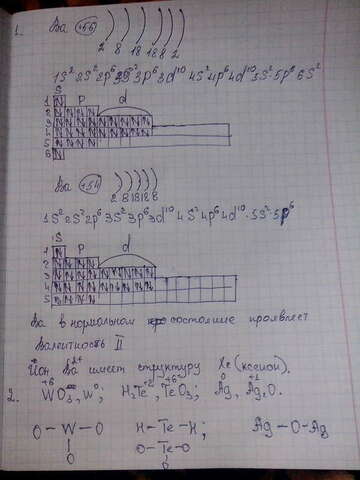 1. Ba +56
2 8 18 18 8 2
1S² 2S² 2p⁶ 3S² 3p⁶ 3d¹⁰ 4S² 4p⁶ 4d¹⁰ 5S² 5p⁶ 6S²
S
1
p
d
2
3
4
5
6
Ba +54
2 8 18 18 8
1S² 2S² 2p⁶ 3S² 3p⁶ 3d¹⁰ 4S² 4p⁶ 4d¹⁰ 5S² 5p⁶
S
1
p
d
2
3
4
5
Ba в нормальном состояние проявляет
валентность II
Ион Ba²⁺ имеет структуру Xe (ксенон).
2. W⁺⁶O₃, W⁰; H₂Te⁺², Te⁺⁶O₃; Ag⁰, Ag₂⁺¹O.
O-W-O H-Te-H; Ag-O-Ag
O O-Te-O
O